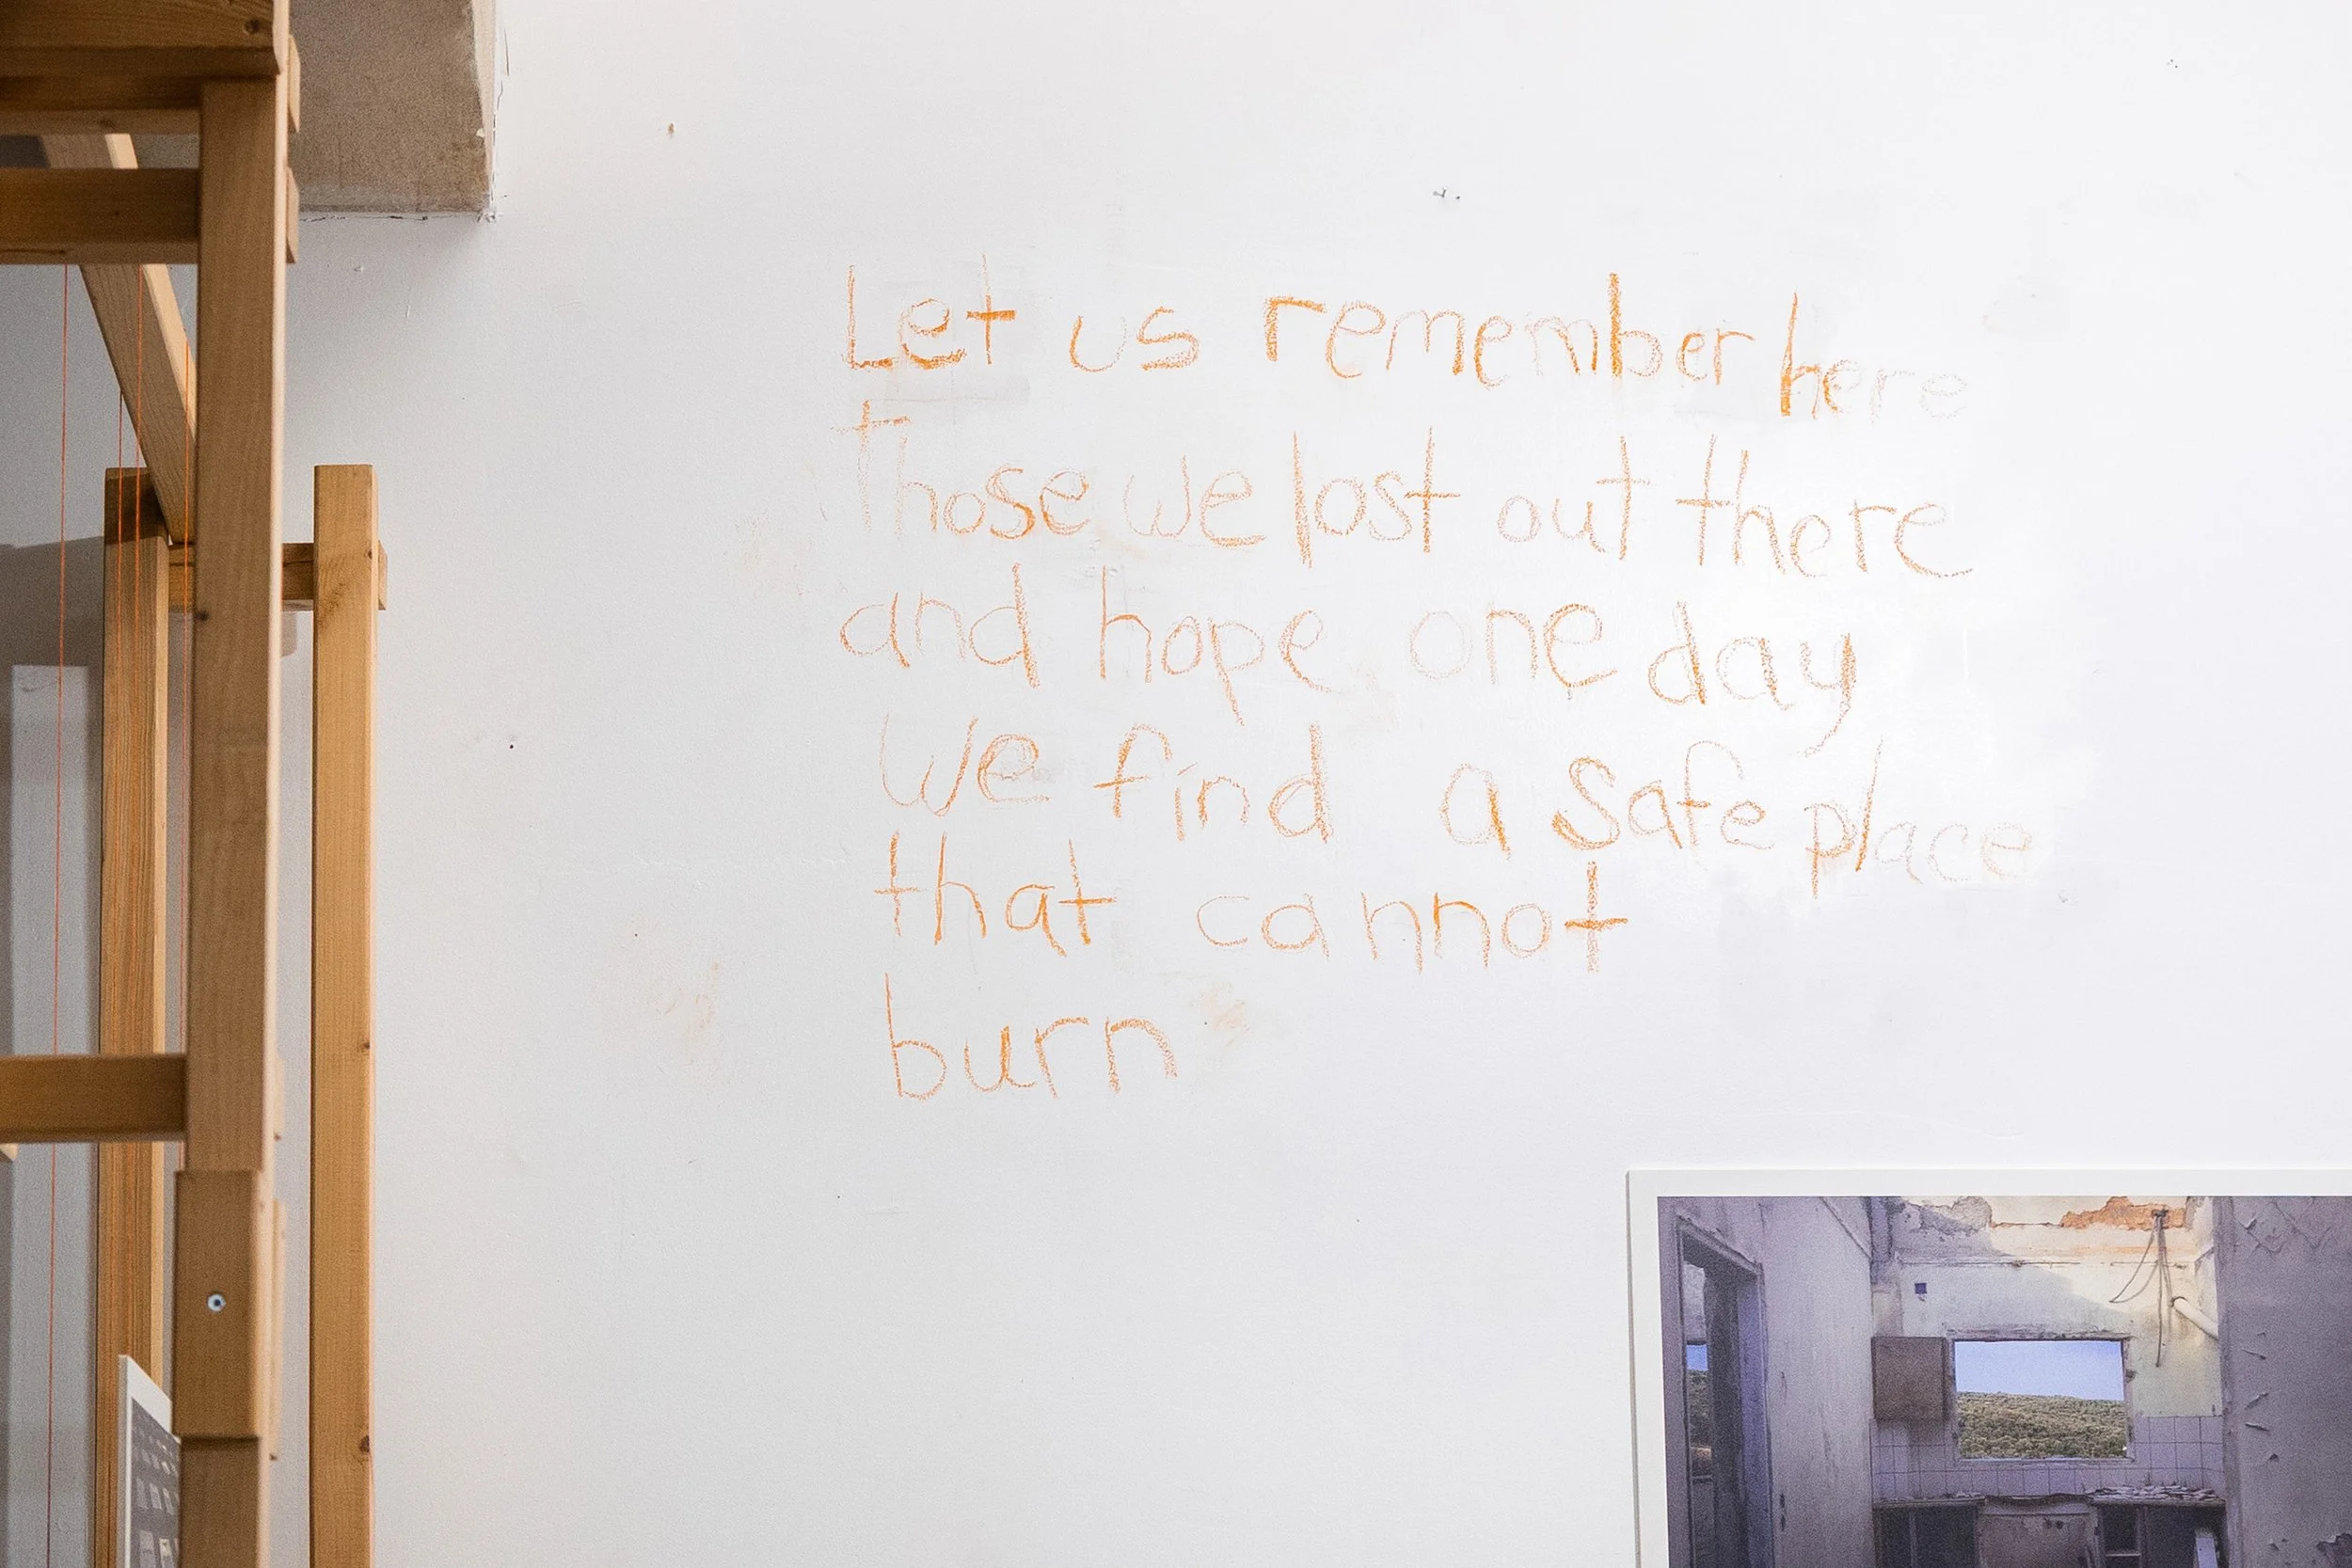 Let us remember here
Those we lost out there
and hope one day
we find a safe place
that cannot
burn